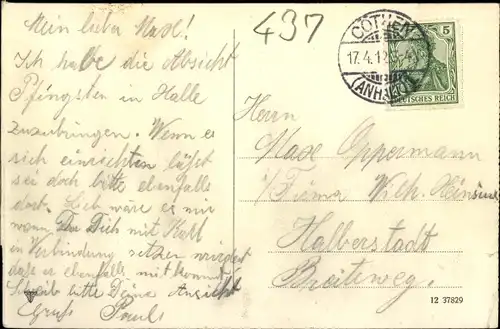 Mein lieber Max!
Ich habe die Absicht
Pfingsten in Halle
zuzubringen. Wenn es
sich einrichten läßt
sei doch bitte ebenfalls
dort. Lieb wäre es mir
wenn Du Dich mit Karl
in Verbindung setzen würdest
daß er ebenfalls mitkommt.
Schreib bitte Deine Ansicht
Gruß Paul
437
CÖTHEN
17.4.12
(ANHALT)
5
DEUTSCHES REICH
Herrn
Max Oppermann
i/Firma Wilh. Heinsius
Halberstadt
Breiteweg.
12 37829